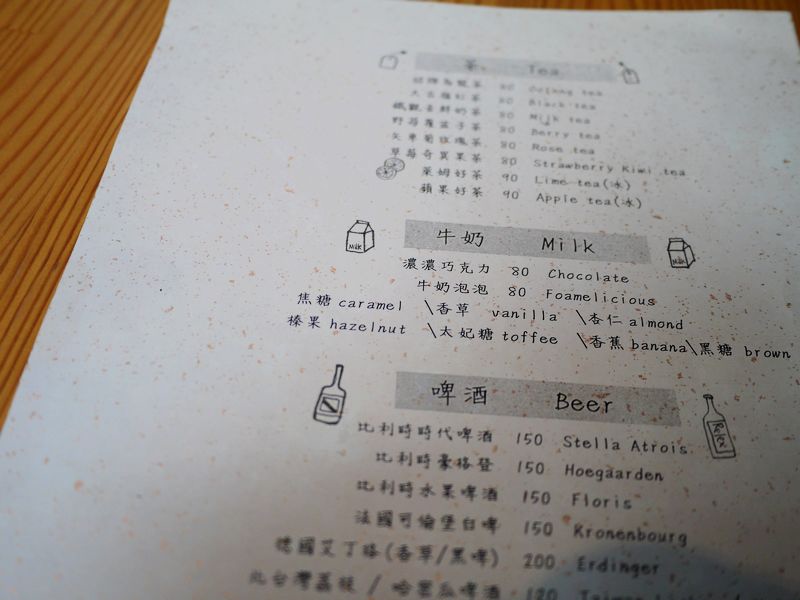 茶、 Tea
招牌烏龍茶 80 Oolong tea
大吉嶺紅茶 80 Black tea
鐵觀音鮮奶茶 80 Milk tea
野莓覆盆子茶 80 Berry tea
矢車菊玫瑰茶 80 Rose tea
草莓奇異果茶 80 Strawberry Kiwi tea
萊姆好茶 90 Lime tea(冰)
蘋果好茶 90 Apple tea(冰)
Milk 牛奶 Milk Milk
濃濃巧克力 80 Chocolate
牛奶泡泡 80 Foamelicious
焦糖 caramel \香草 vanilla \杏仁 almond
榛果 hazelnut \太妃糖 toffee \香蕉 banana\黑糖 brown
啤酒 Beer
比利時時代啤酒 150 Stella Atrois
比利時豪格登 150 Hoegaarden
比利時水果啤酒 150 Floris
法國可倫堡白啤 150 Kronenbourg
德國艾丁格(香草/黑啤) 200 Erdinger
北台灣荔枝 / 哈密瓜啤酒 120 Taiwan